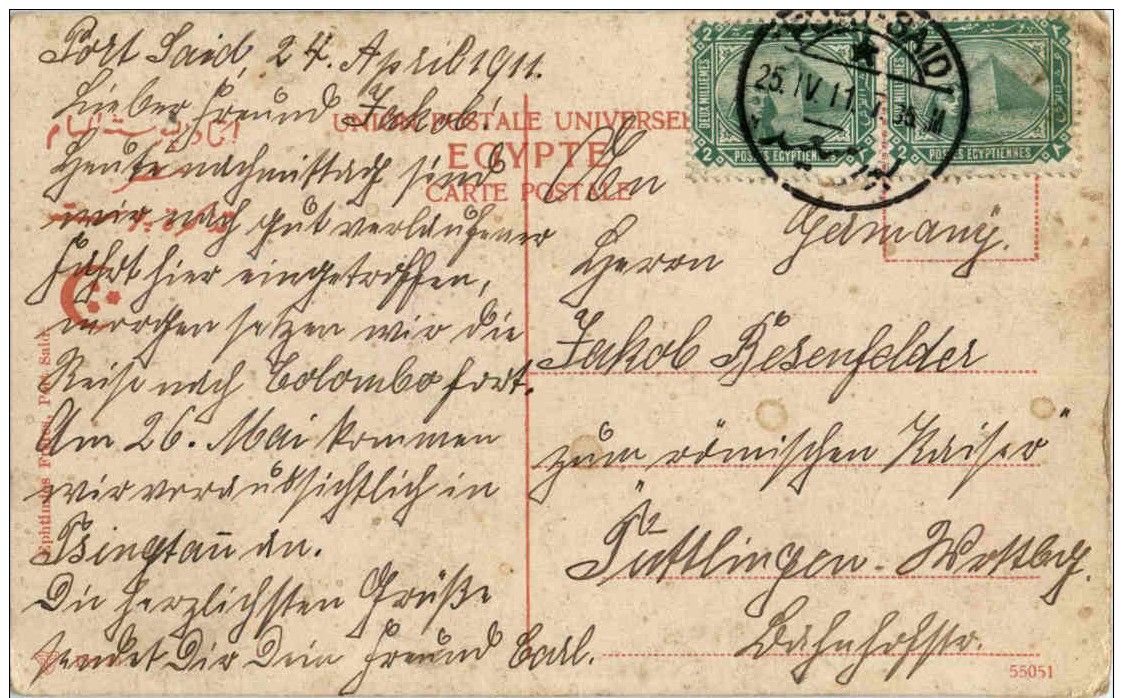 Port Said, 24. April 1911.
Lieber Freund Jakob!
Heute nachmittag sind
wir nach gut verlaufener
Fahrt hier eingetroffen,
morgen setzen wir die
Reise nach Colombo fort.
Am 26. Mai kommen
wir voraussichtlich in
Tsingtau an.
Die herzlichsten Grüße
sendet Dir Dein Freund Carl.
UNION POSTALE UNIVERSEL
EGYPTE
CARTE POSTALE
An
Herrn
Germany.
Jakob Besenfelder
zum „römischen Kaiser“
Tuttlingen - Wrttbg.
Bahnhofstr.
55051
Port Said
2
DEUX MILLIEMES
2 POSTES EGYPTIENNES
2 POSTES EGYPTIENNES
PORT-SAID
25. IV. 11